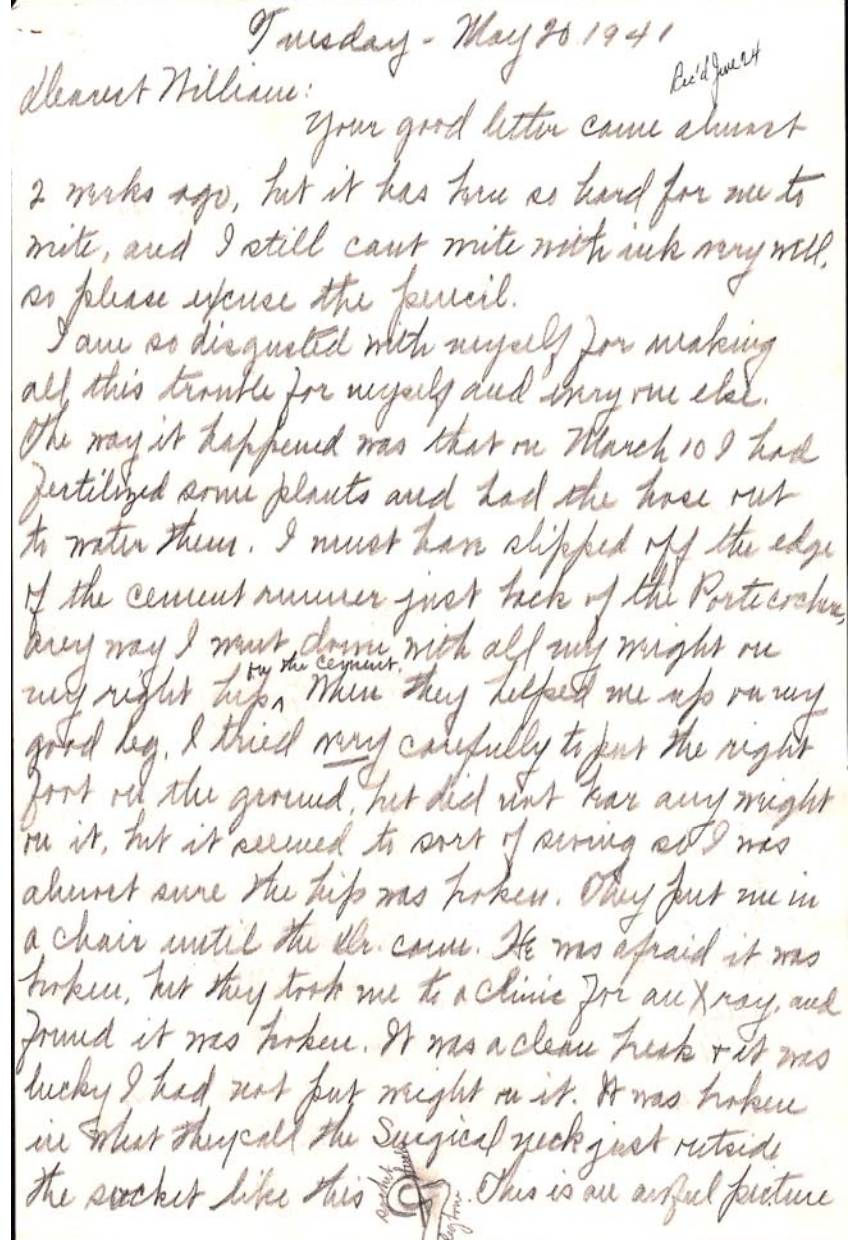 Tuesday - May 20 1941
Rec'd June 24
Dearest William:
Your good letter came almost
2 weeks ago, but it has been so hard for me to
write, and I still cant write with ink very well,
so please excuse the pencil.
I am so disgusted with myself for making
all this trouble for myself and every one else.
The way it happened was that on March 10 I had
fertilized some plants and had the hose out
to water them. I must have slipped off the edge
of the cement runner just back of the Portecochere,
any way I went down with all my weight on
my right hip ^ on the cement. When they helped me up on my
good leg, I tried very carefully to put the right
foot on the ground, but did not bear any weight
on it, but it seemed to sort of swing so I was
almost sure the hip was broken. They put me in
a chair until the Dr. came. He was afraid it was
broken, but they took me to a Clinic for an X ray, and
found it was broken. It was a clean break + it was
lucky I had not put weight on it. It was broken
in what they call the Surgical neck just outside
the socket like this socket leg bone. This is an awful picture